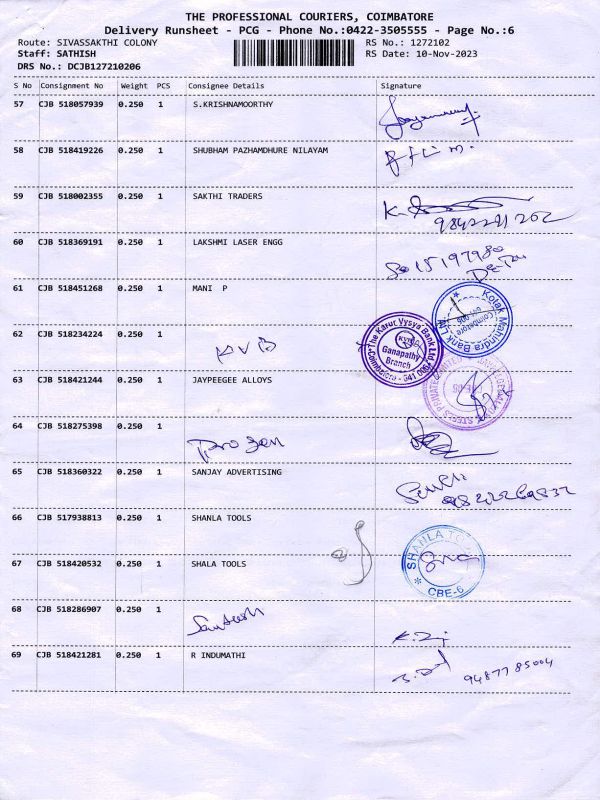 THE PROFESSIONAL COURIERS, COIMBATORE
Delivery Runsheet - PCG - Phone No.:0422-3505555 - Page No.:6
Route: SIVASSAKTHI COLONY RS No.: 1272102
Staff: SATHISH RS Date: 10-Nov-2023
DRS No.: DCJB127210206
S No Consignment No Weight PCS Consignee Details Signature
57 CJB 518057939 0.250 1 S.KRISHNAMOORTHY
58 CJB 518419226 0.250 1 SHUBHAM PAZHAMDHURE NILAYAM
59 CJB 518002355 0.250 1 SAKTHI TRADERS
9842291202
60 CJB 518369191 0.250 1 LAKSHMI LASER ENGG
61 CJB 518451268 0.250 1 MANI P
Kotak Mahindra Bank
Coimbatore
62 CJB 518234224 0.250 1 KVB
The Karur Vysya Bank Ltd.
KVB
Ganapathy
Branch
Coimbatore - 641 006
63 CJB 518421244 0.250 1 JAYPEEGEE ALLOYS
64 CJB 518275398 0.250 1
65 CJB 518360322 0.250 1 SANJAY ADVERTISING
66 CJB 517938813 0.250 1 SHANLA TOOLS
67 CJB 518420532 0.250 1 SHALA TOOLS
SHANLA TOOLS
* CBE-6
68 CJB 518286907 0.250 1 Santhosh
69 CJB 518421281 0.250 1 R INDUMATHI
9487785004